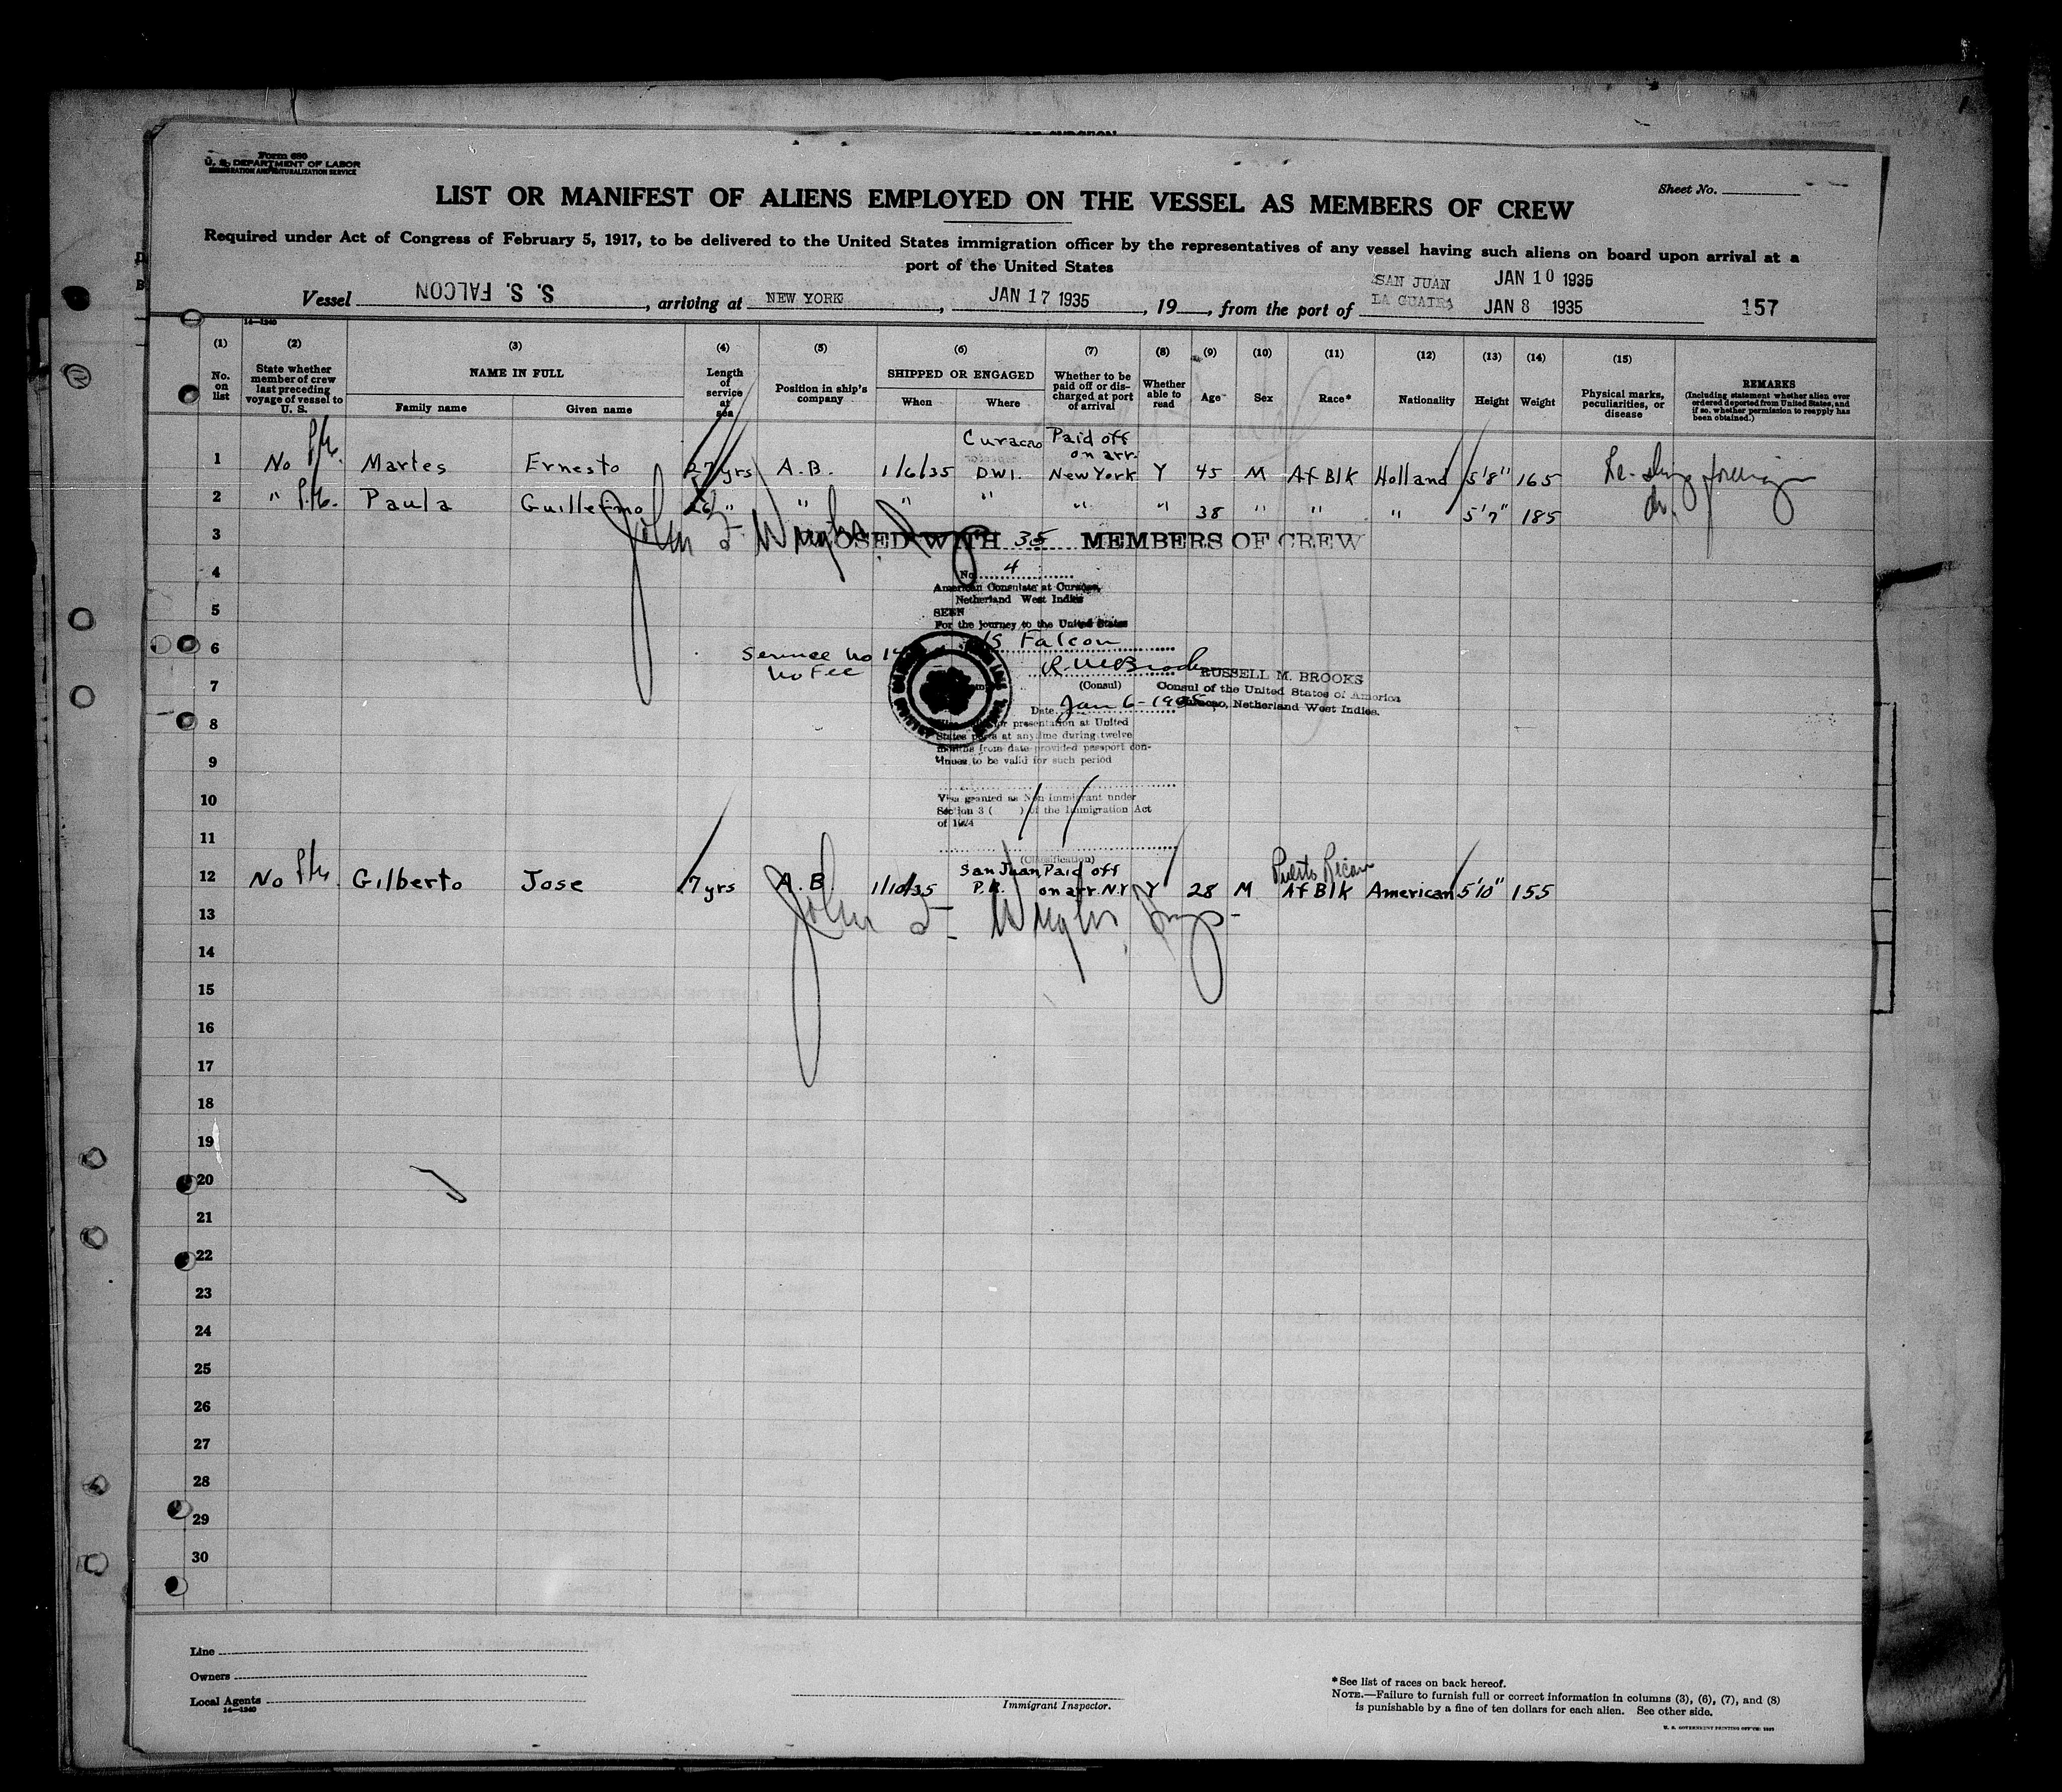 Form 680
U. S. DEPARTMENT OF LABOR
IMMIGRATION AND NATURALIZATION SERVICE
Sheet No.
LIST OR MANIFEST OF ALIENS EMPLOYED ON THE VESSEL AS MEMBERS OF CREW
Required under Act of Congress of February 5, 1917, to be delivered to the United States immigration officer by the representatives of any vessel having such aliens on board upon arrival at a
port of the United States
SAN JUAN JAN 10 1935
Vessel S. S. FALCON, arriving at NEW YORK, JAN 17 1935, 19, from the port of LA GUAIRA JAN 8 1935 157
14—1240
(1) (2) (3) (4) (5) (6) (7) (8) (9) (10) (11) (12) (13) (14) (15)
No. on list
State whether member of crew last preceding voyage of vessel to U. S.
NAME IN FULL
Family name Given name
Length of service at sea
Position in ship's company
SHIPPED OR ENGAGED
When Where
Whether to be paid off or discharged at port of arrival
Whether able to read
Age
Sex
Race*
Nationality
Height
Weight
Physical marks, peculiarities, or disease
REMARKS
(Including statement whether alien ever ordered deported from United States, and if so, whether permission to reapply has been obtained.)
Curacao Paid off
on arr.
1 No Martes Ernesto 27 yrs A.B. 1/6/35 DWI. New York Y 45 M Af Blk Holland 5'8" 165
2 " Paula Guillermo 26 " " " " " " 38 " " " 5'7" 185
John F Wright
3 OSED WITH 35 MEMBERS OF CREW
4
No. 4
American Consulate at Curaçao,
Netherland West Indies
5
SEEN
For the journey to the United States
6
S Falcon
Service No
No Fee
R. M. Brooks
RUSSELL M. BROOKS
7
(Consul)
Consul of the United States of America
Curaçao, Netherland West Indies.
Date Jan 6-1935
8
for presentation at United
States ports at any time during twelve
months from date provided passport con-
tinues to be valid for such period
9
10
Visa granted as Non immigrant under
Section 3 ( ) of the Immigration Act
of 1924
11
(Classification)
San Juan Paid off
Puerto Rican
12 No Gilberto Jose 7 yrs A.B. 1/10/35 P.R. on arr. N.Y Y 28 M Af Blk American 5'10" 155
John F. Wright, Insp-
13
14
15
16
17
18
19
20
21
22
23
24
25
26
27
28
29
30
Line
Owners
Local Agents
14—1240
Immigrant Inspector.
*See list of races on back hereof.
NOTE.—Failure to furnish full or correct information in columns (3), (6), (7), and (8)
is punishable by a fine of ten dollars for each alien. See other side.
U. S. GOVERNMENT PRINTING OFFICE: